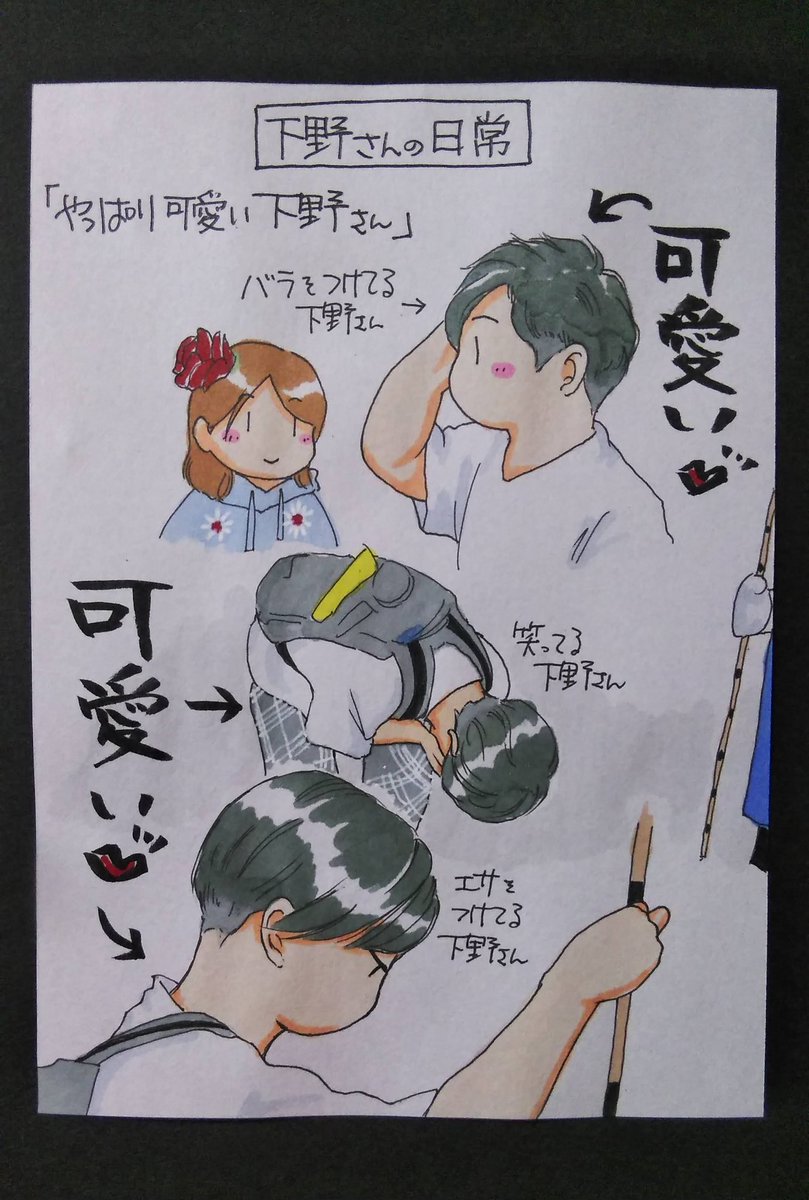 下野さんの日常
「やっぱり可愛い下野さん」
バラをつけてる
下野さん
可愛い
笑ってる
下野さん
可愛い
エサを
つけてる
下野さん